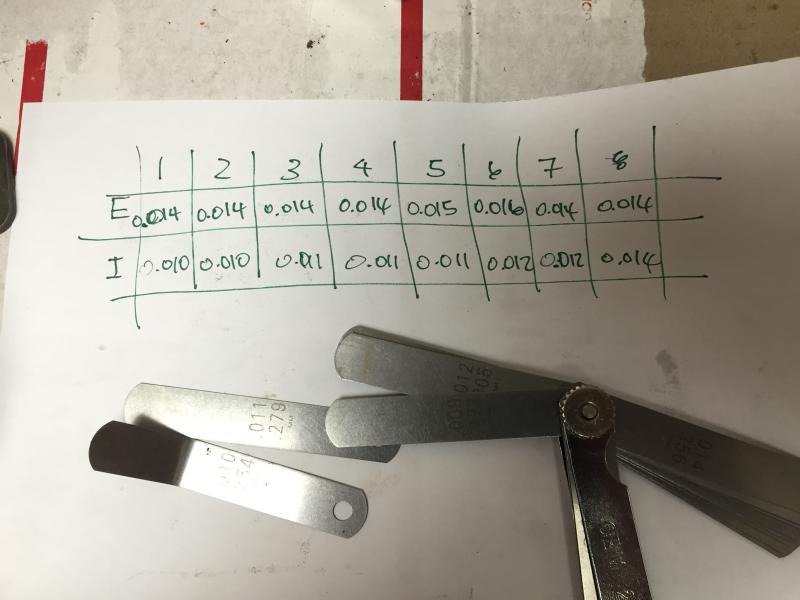 1 2 3 4 5 6 7 8
E 0.014 0.014 0.014 0.014 0.015 0.016 0.014 0.014
I 0.010 0.010 0.011 0.011 0.011 0.012 0.012 0.014
.011
.279
mm
.010
.254
.009
.012
.305
mm
.014